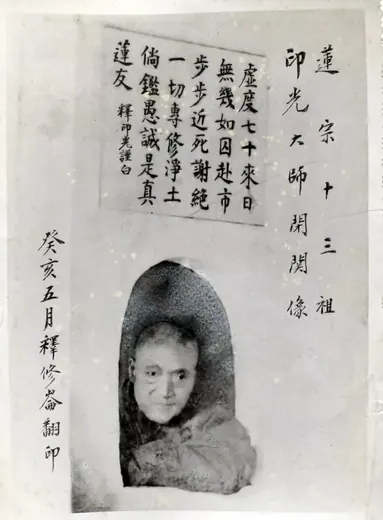 蓮宗十三祖
印光大師閉關像
虛度七十來日
無幾如囚赴市
步步近死謝絕
一切專修淨土
倘鑑愚誠是真
蓮友 釋印光謹白
癸亥五月釋修崙翻印